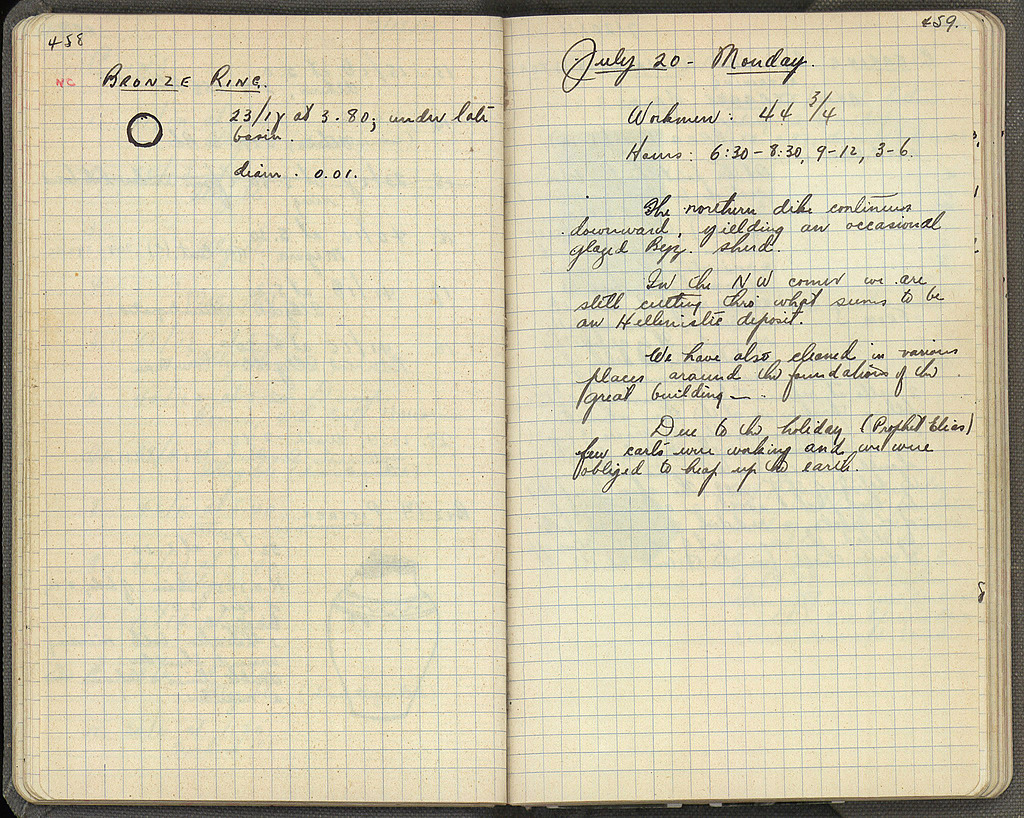 458
NC
BRONZE RING.
23/ΙΓ at 3.80; under late
basin.
diam. 0.01.
459.
July 20 - Monday.
Workmen: 44 3/4
Hours: 6:30-8:30, 9-12, 3-6.
The northern dike continues
downward, yielding an occasional
glazed Byz. sherd.
In the NW corner we are
still cutting thro' what seems to be
an Hellenistic deposit.
We have also cleaned in various
places around the foundations of the
great building —.
Due to the holiday (Prophet Elias)
few carts were working and we were
obliged to heap up the earth.